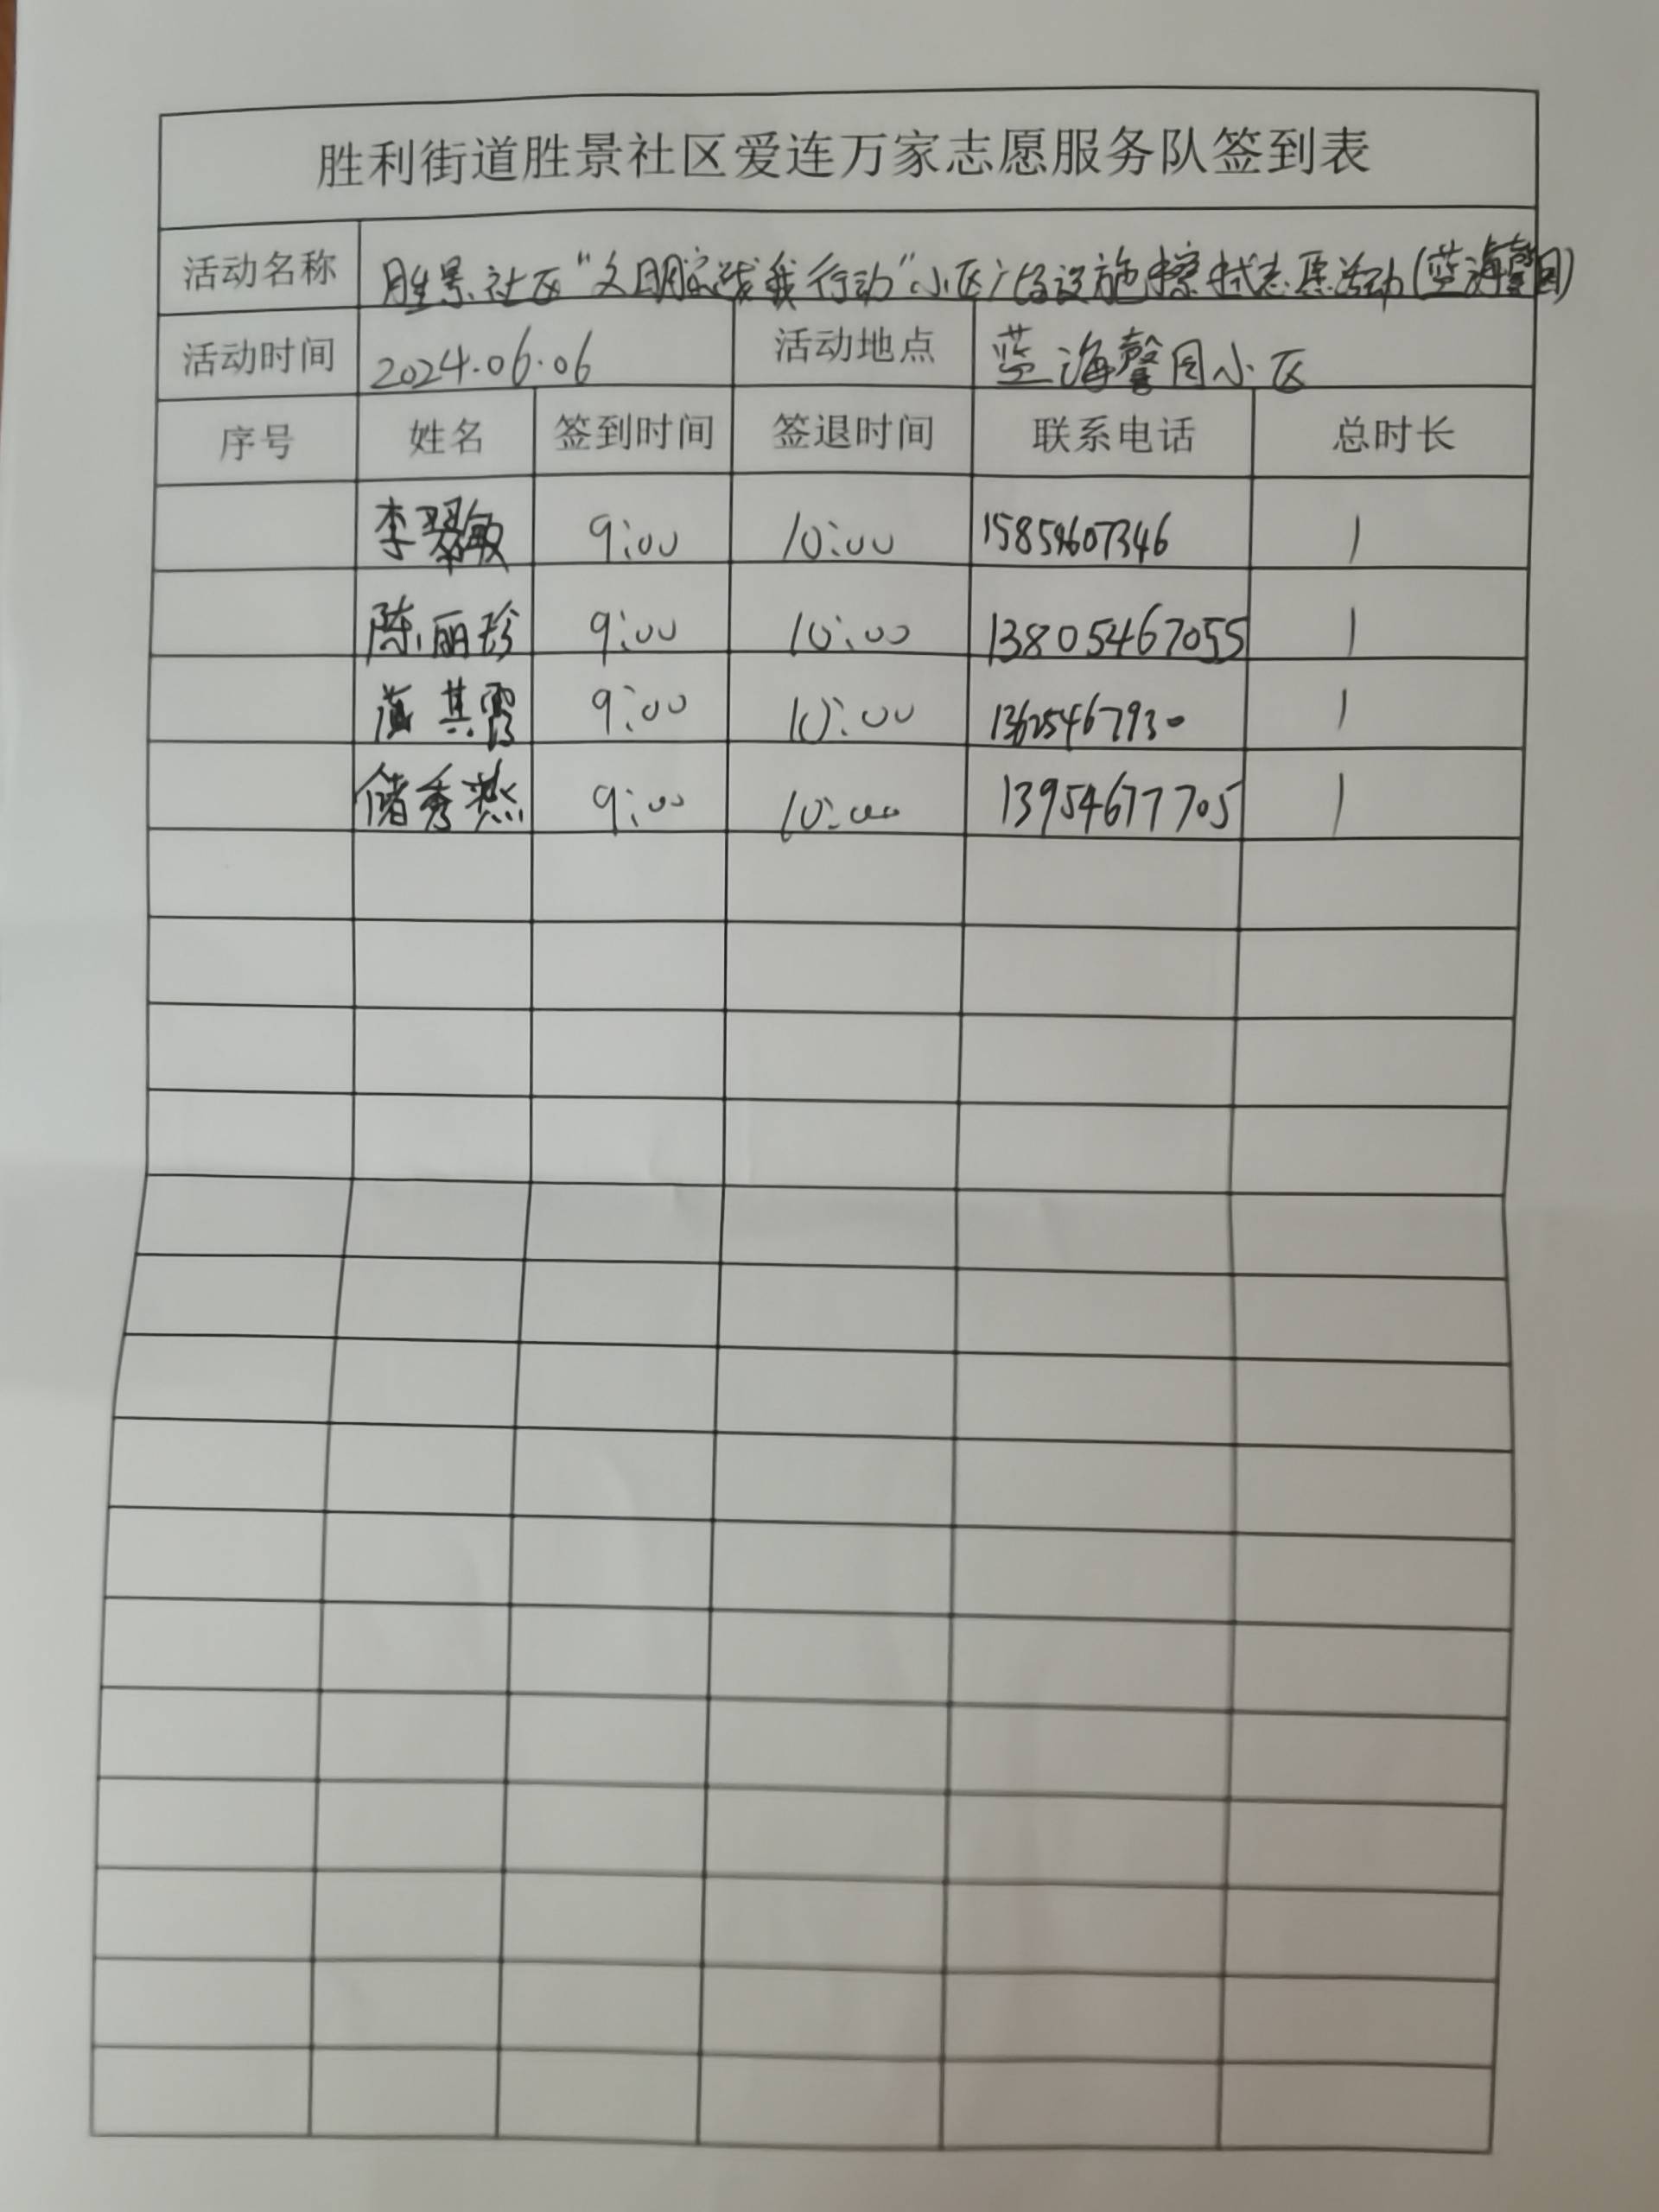 胜利街道胜景社区爱连万家志愿服务队签到表
活动名称 胜景社区“文明实践我行动”小区广场设施擦拭志愿活动(蓝海馨园)
活动时间 2024.06.06 活动地点 蓝海馨园小区
序号 姓名 签到时间 签退时间 联系电话 总时长
李翠敏 9:00 10:00 15854607346 1
陈丽珍 9:00 10:00 13805467055 1
其霞 9:00 10:00 13625467930 1
储秀燕 9:00 10:00 13954677705 1